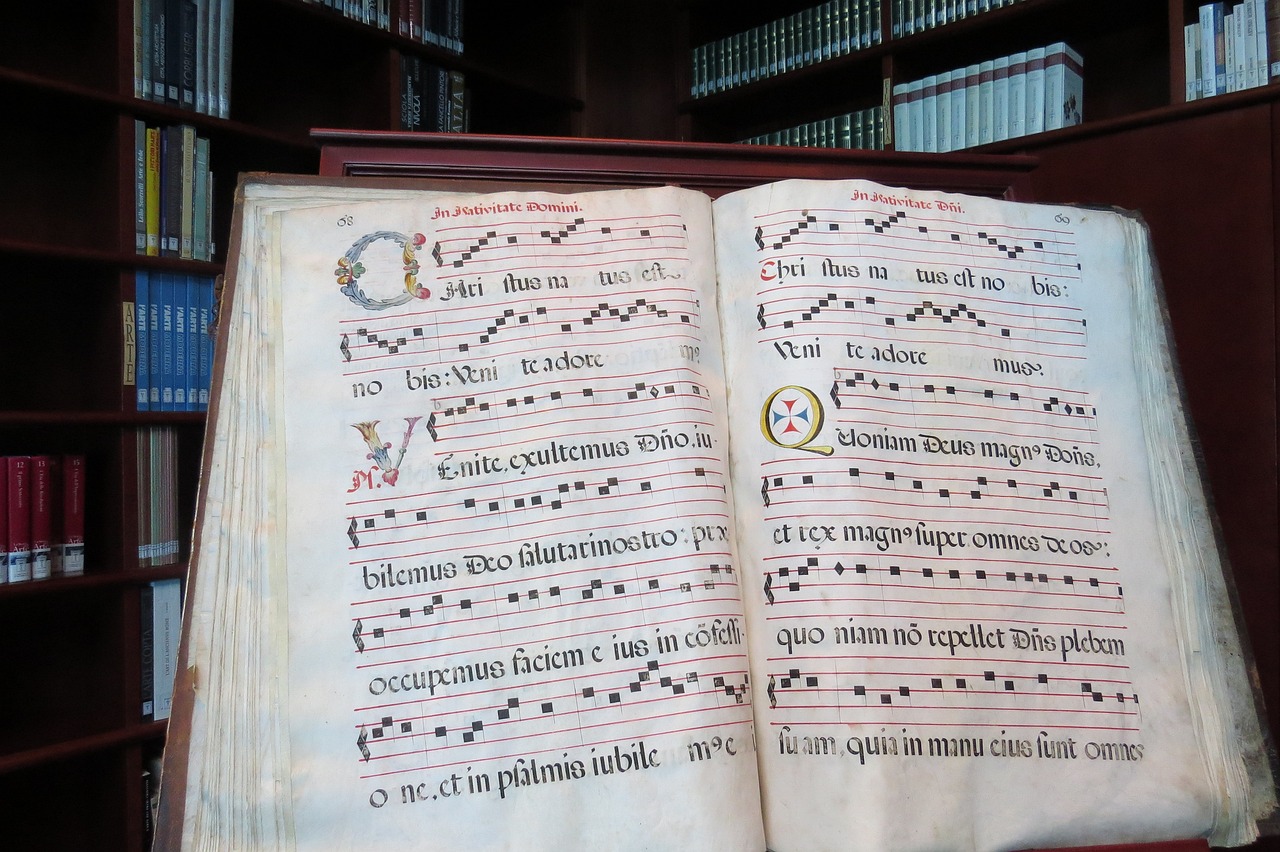 68
In Nativitate Domini.
CHri stus na tus est
no bis: Veni te adore m9
Ps. VEnite, exultemus Dño, iu-
bilemus Deo salutari nostro: præ
occupemus faciem e ius in cõfessi-
o ne, et in psalmis iubile m9 e
69
In Nativitate Dñi.
Chri stus na tus est no bis:
Veni te adore mus.
Quoniam Deus magn9 Dõns,
et rex magn9 super omnes deos:
quo niam nõ repellet Dñs plebem
suam, quia in manu eius sunt omnes
ARTE
L'ARTE
L'ARTE
L'ARTE
L'ARTE
L'ARTE